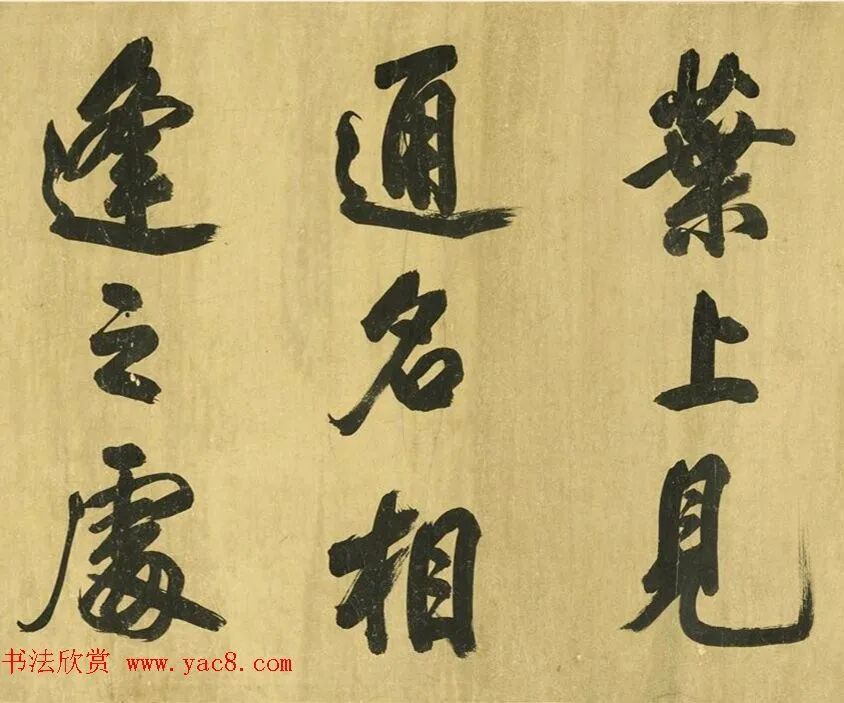 葉上見
通名相
逢之處
书法欣赏 www.yac8.com